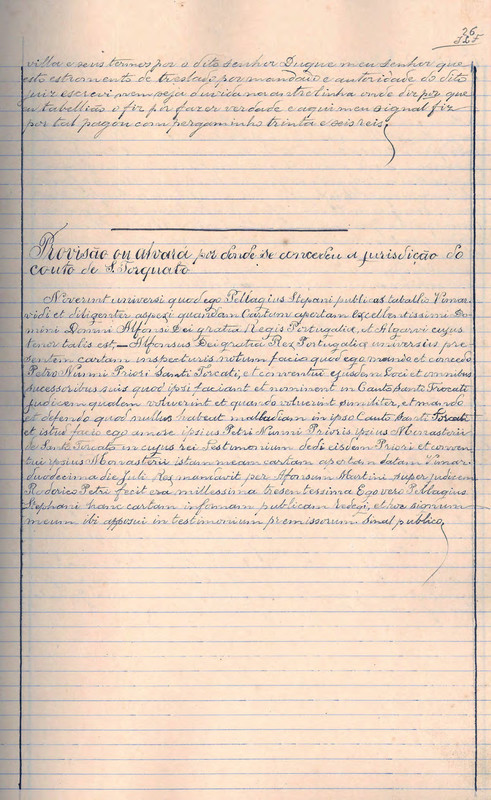 26
villa e seus termos por o dito senhor Duque meu senhor que
este estromento de treslado por mandado e autoridade do dito
juiz escrevi nem seja duvida na antrelinha onde diz por que
eu tabellião o fiz por fazer verdade e aqui meu signal fiz
por tal pagou com pergaminho trinta e seis reis
Provisão ou alvará por donde se concedeu a jurisdição do
couto de S. Torquato
Noverunt universi quod ego Pellagius Stepani publicus tabellio Vimar
vidi et diligenter aspexi quandam Cartam apertam Excellentissimi Do-
mini Domni Alfonsi Dei gratia Regis Portugalia, et Algarvi cujus
tenor talis est, — Alfonsus Dei gratia Rex Portugalia universis pre-
sentem cartam inspecturis notum facio quod ego mando et concedo
Petro Nunni Priori Santi Torcati, et conventui ejusdem Loci et omnibus
sucessoribus suis quod ipsi faciant et nominent in Cauto Santi Trocati
judicem qualem voluerint et quando voluerint similiter, et mando
et defendo quod nullus habeat malladiam in ipso Cauto Santi Torcati
et istud facio ego amore ipsius Petri Nunni Prioris ipsius Monasterii
de Santo Torcato in cujus rei Testimonium dedi eisdem Priori et conven-
tui ipsius Monasterii istam meam cartam apertam datam Vimar
duodecima die Juli Rex mandavit per Afonsum Martini super judicem
Roderico Petri fecit era millessima tresentessima Ego vero Pellagius
Stephani hanc cartam in formam publicam redegi, et hoc signum
meum ibi apposui in testimonium premissorum Sinal publico